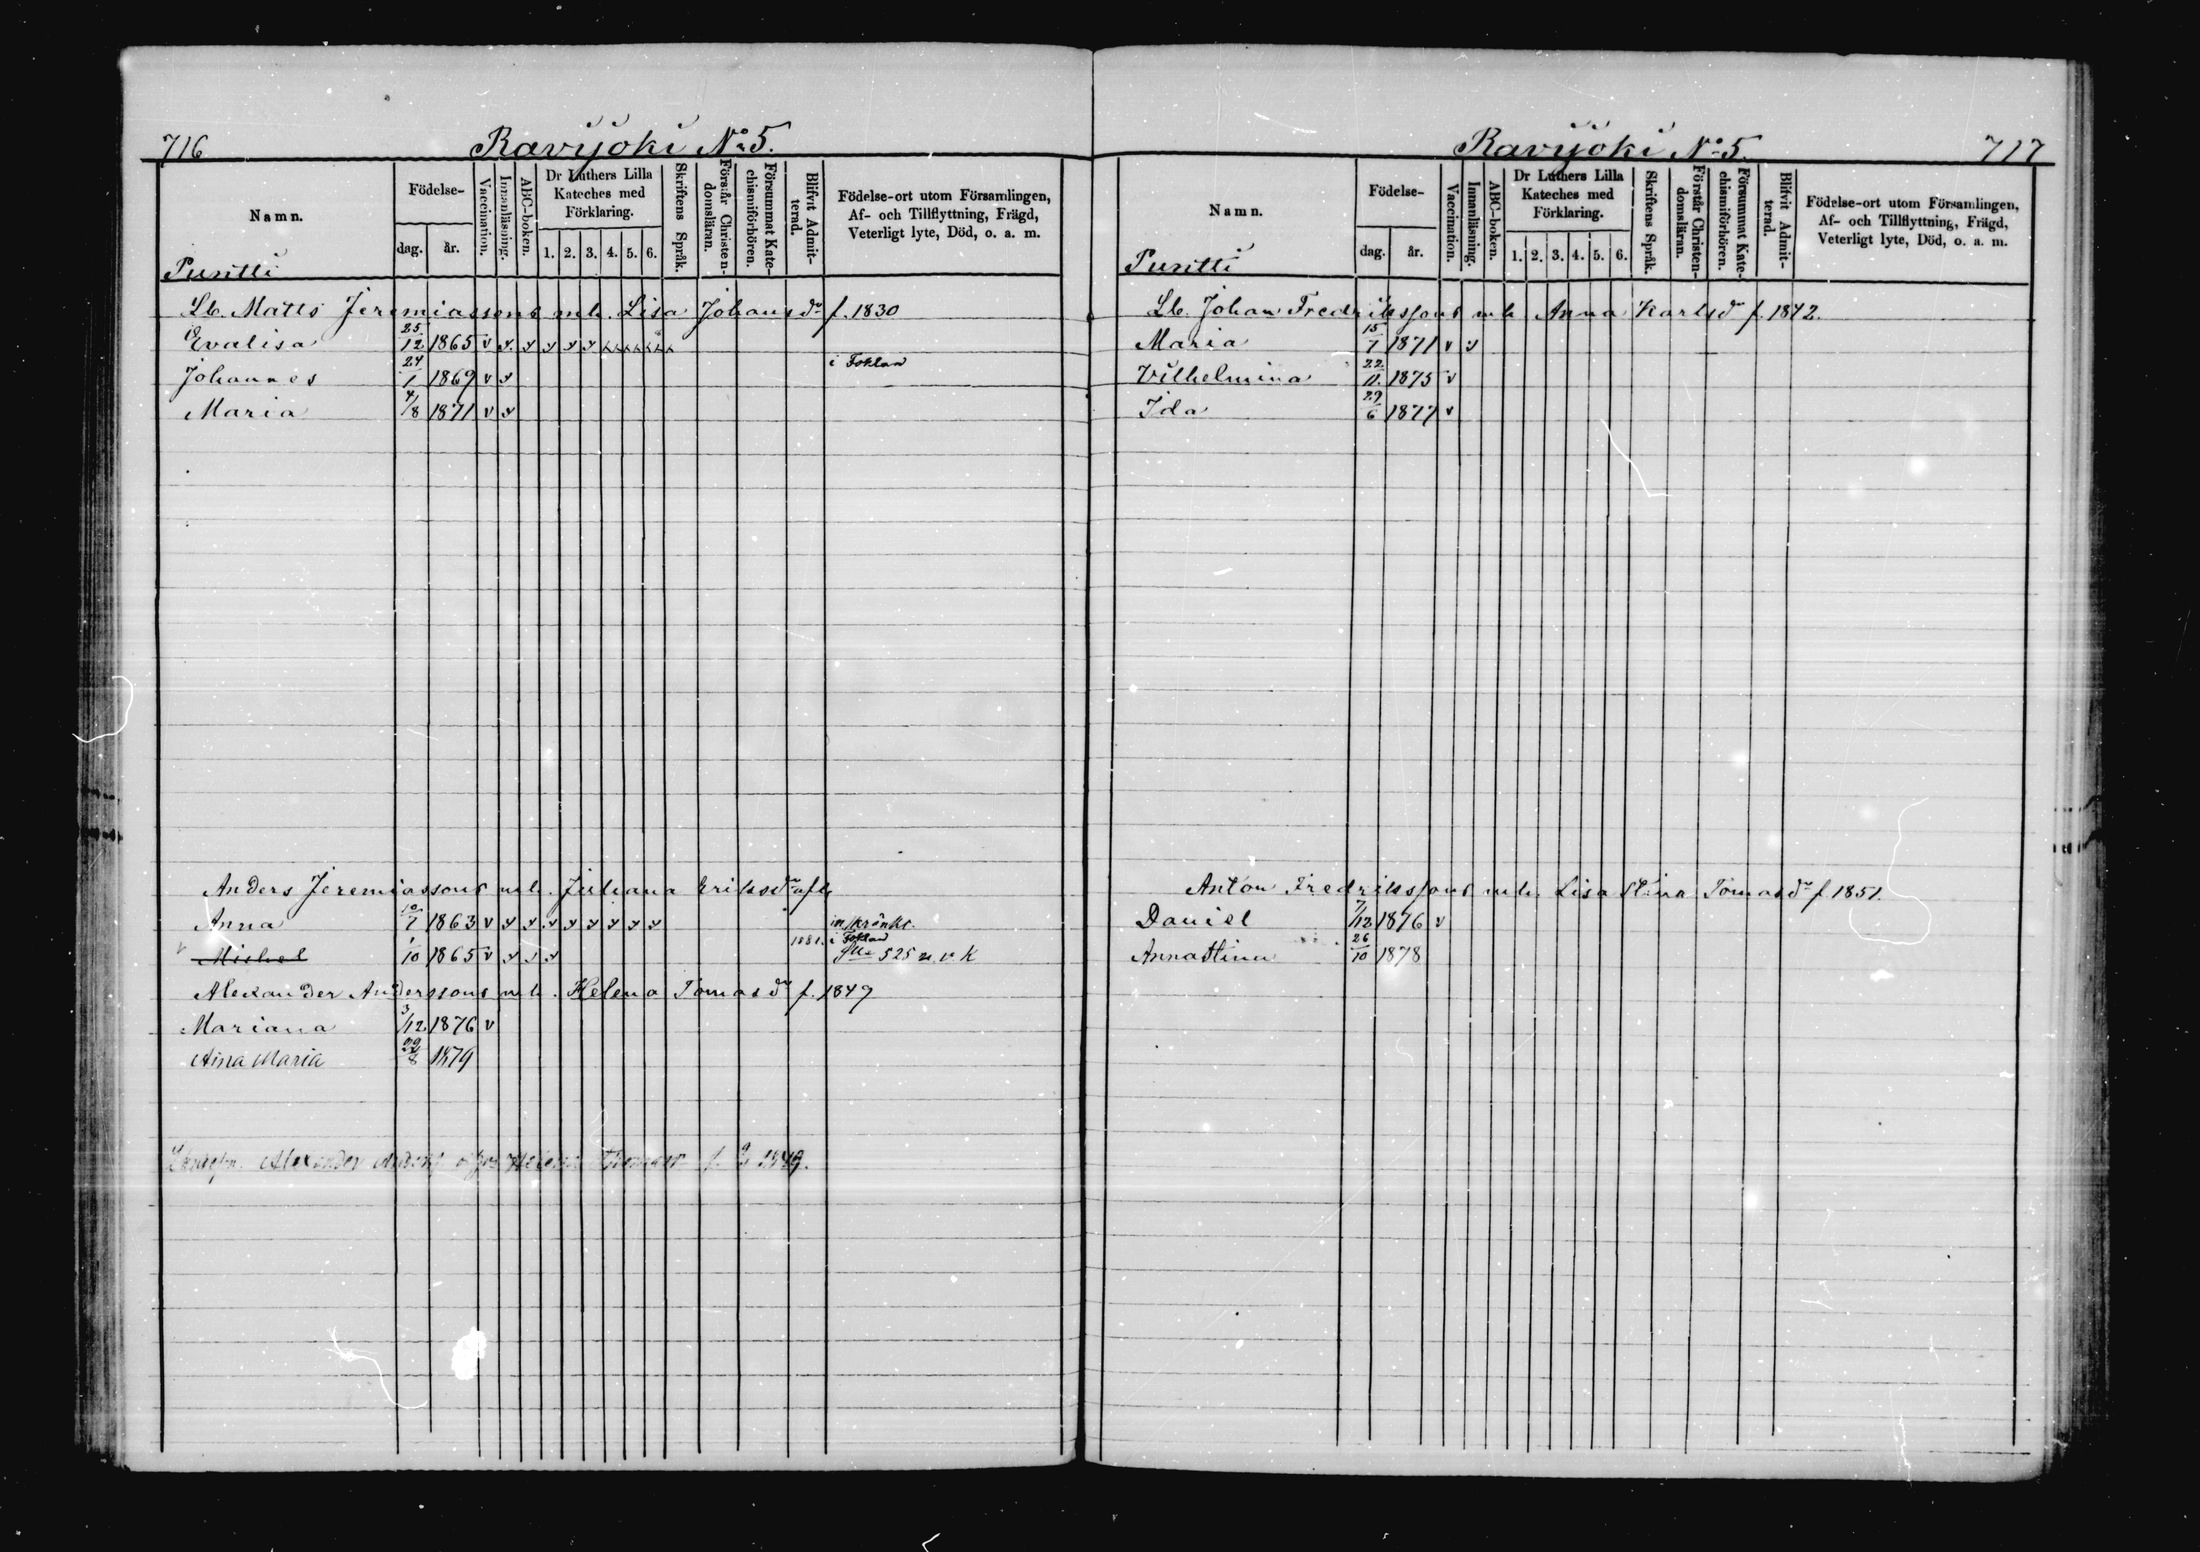 716 Ravijoki No 5.
Namn. Födelse- Vaccination. Innanläsning. ABC-boken. Dr Luthers Lilla Kateches med Förklaring. Skriftens Språk. Förstår Christendomsläran. Försummat Katechismiförhören. Blifvit Admitterad. Födelse-ort utom Församlingen, Af- och Tillflyttning, Frägd, Veterligt lyte, Död, o. a. m.
dag. år. 1. 2. 3. 4. 5. 6.
Puntti
Lb. Matts Jeremiassons m h. Lisa Johansdr f. 1830
Evalisa 25/12 1865 v
Johannes 24/1 1869 v
Maria 4/8 1871 v
Anders Jeremiassons m h. Juliana Eriksdr
Anna 10/7 1863 v
Michel 1/10 1865 v 1881. 525 n. v. K
Alexander Anderssons m h. Helena Tomasdr f. 1849
Mariana 3/12 1876 v
Aina Maria 22/8 1879
Alexander Helena 1849.
Ravijoki No 5. 717
Namn. Födelse- Vaccination. Innanläsning. ABC-boken. Dr Luthers Lilla Kateches med Förklaring. Skriftens Språk. Förstår Christendomsläran. Försummat Katechismiförhören. Blifvit Admitterad. Födelse-ort utom Församlingen, Af- och Tillflyttning, Frägd, Veterligt lyte, Död, o. a. m.
dag. år. 1. 2. 3. 4. 5. 6.
Puntti
Lb. Johan Fredrikssons m h Anna Karlsdr f. 1842.
Maria 15/7 1871 v
Vilhelmina 22/11 1875 v
Ida 29/6 1877 v
Anton Fredrikssons m h. Lisa Stina Tomasdr f. 1851.
Daniel 7/12 1876 v
Annastina 26/10 1878